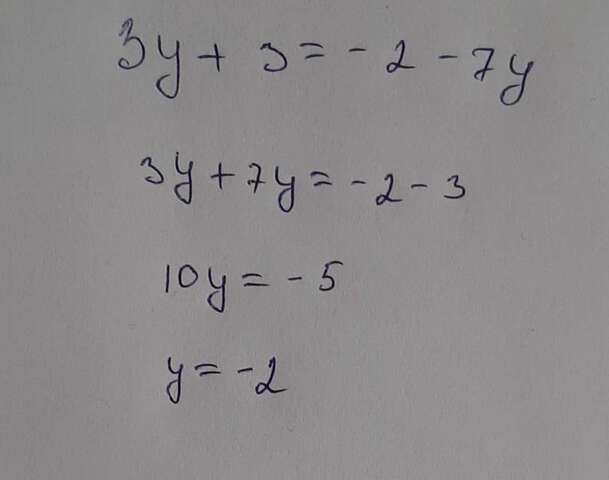 3y + 3 = - 2 - 7y
3y + 7y = - 2 - 3
10y = - 5
y = -2